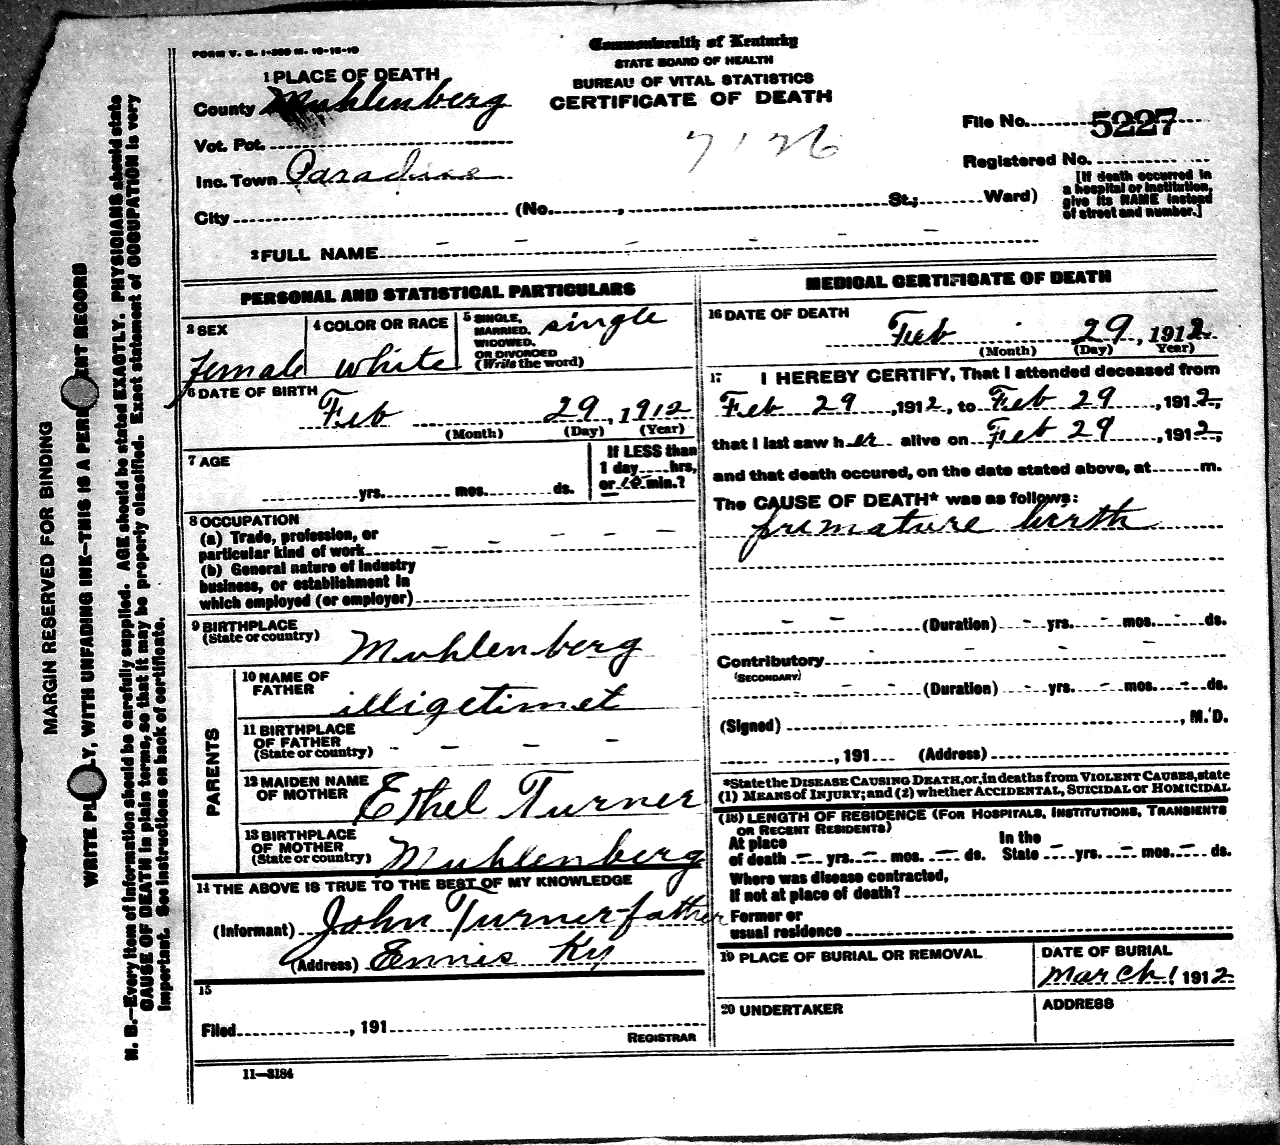 FORM V. S. 1-200 M. 10-16-10
Commonwealth of Kentucky
STATE BOARD OF HEALTH
BUREAU OF VITAL STATISTICS
CERTIFICATE OF DEATH
1 PLACE OF DEATH
County Muhlenberg
Vot. Pct.
Inc. Town Paradise
City (No. , St.; Ward)
7126
File No. 5227
Registered No.
[If death occurred in
a hospital or institution,
give its NAME instead
of street and number.]
2 FULL NAME - - - - - -
PERSONAL AND STATISTICAL PARTICULARS
3 SEX
female
4 COLOR OR RACE
white
5 SINGLE,
MARRIED,
WIDOWED,
OR DIVORCED
(Write the word)
single
6 DATE OF BIRTH
Feb 29, 1912
(Month) (Day) (Year)
7 AGE
yrs. mos. ds.
If LESS than
1 day hrs,
or 10 min.?
8 OCCUPATION
(a) Trade, profession, or
particular kind of work - - - - -
(b) General nature of industry
business, or establishment in
which employed (or employer)
9 BIRTHPLACE
(State or country) Muhlenberg
PARENTS
10 NAME OF
FATHER illigetimet
11 BIRTHPLACE
OF FATHER
(State or country) - - - -
12 MAIDEN NAME
OF MOTHER Ethel Turner
13 BIRTHPLACE
OF MOTHER
(State or country) Muhlenberg
14 THE ABOVE IS TRUE TO THE BEST OF MY KNOWLEDGE
(Informant) John Turner-father
(Address) Ennis Ky
15
Filed , 191
REGISTRAR
11—3184
MEDICAL CERTIFICATE OF DEATH
16 DATE OF DEATH
Feb 29, 1912
(Month) (Day) Year)
17 I HEREBY CERTIFY, That I attended deceased from
Feb 29, 1912, to Feb 29, 1912,
that I last saw her alive on Feb 29, 1912,
and that death occured, on the date stated above, at m.
The CAUSE OF DEATH* was as follows:
premature birth
- - (Duration) - yrs. - mos. ds.
Contributory - - -
(SECONDARY)
- - (Duration) - yrs. - mos. - ds.
(Signed) , M.D.
, 191 (Address)
*State the DISEASE CAUSING DEATH, or, in deaths from VIOLENT CAUSES, state
(1) MEANS of INJURY; and (2) whether ACCIDENTAL, SUICIDAL or HOMICIDAL
(18) LENGTH OF RESIDENCE (FOR HOSPITALS, INSTITUTIONS, TRANSIENTS
OR RECENT RESIDENTS)
At place In the
of death — yrs. — mos. — ds. State — yrs. — mos. — ds.
Where was disease contracted,
If not at place of death?
Former or
usual residence
19 PLACE OF BURIAL OR REMOVAL
DATE OF BURIAL
March 1 1912
20 UNDERTAKER
ADDRESS
MARGIN RESERVED FOR BINDING
WRITE PL LY, WITH UNFADING INK—THIS IS A PER ENT RECORD
N. B.—Every item of information should be carefully supplied. AGE should be stated EXACTLY. PHYSICIANS should state
CAUSE OF DEATH in plain terms, so that it may be properly classified. Exact statement of OCCUPATION is very
important. See instructions on back of certificate.